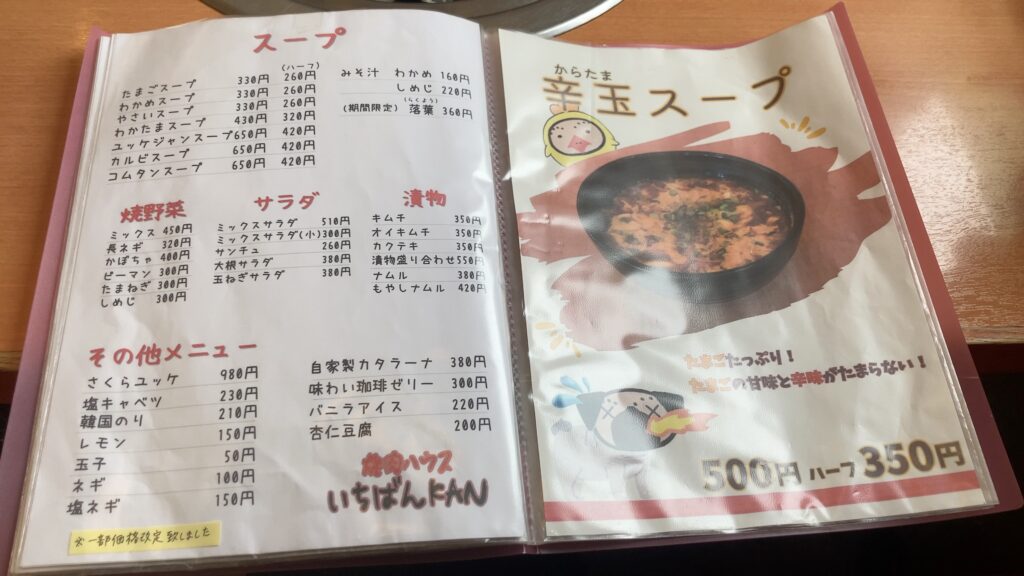 スープ
(ハーフ)
たまごスープ 330円 260円
わかめスープ 330円 260円
やさいスープ 330円 260円
わかたまスープ 430円 320円
ユッケジャンスープ 650円 420円
カルビスープ 650円 420円
コムタンスープ 650円 420円
みそ汁 わかめ 160円
しめじ 220円
(らくよう)
(期間限定) 落葉 360円
焼野菜
ミックス 450円
長ネギ 320円
かぼちゃ 400円
ピーマン 300円
たまねぎ 300円
しめじ 300円
サラダ
ミックスサラダ 510円
ミックスサラダ(小) 300円
サンチュ 260円
大根サラダ 380円
玉ねぎサラダ 380円
漬物
キムチ 350円
オイキムチ 350円
カクテキ 350円
漬物盛り合わせ 550円
ナムル 380円
もやしナムル 420円
その他メニュー
さくらユッケ 980円
塩キャベツ 230円
韓国のり 210円
レモン 150円
玉子 50円
ネギ 100円
塩ネギ 150円
自家製カタラーナ 380円
味わい珈琲ゼリー 300円
バニラアイス 220円
杏仁豆腐 200円
焼肉ハウス
いちばんKAN
※一部価格改定致しました
からたま
辛玉スープ
たまごたっぷり!
たまごの甘味と辛味がたまらない!
500円 ハーフ 350円